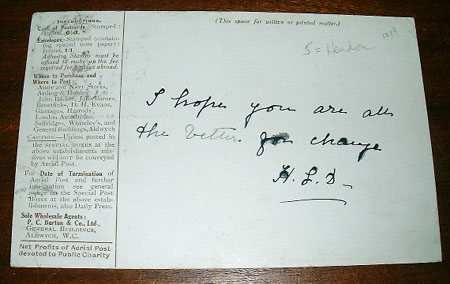 INSTRUCTIONS.
Cost of Postcards (Stamped)
6½d.
Envelopes, Stamped (containing special note paper)
inland, 1/1.
Adhesive Stamps must be
affixed to make up the fee
required for postage abroad.
Where to Purchase and
Where to Post:
Army and Navy Stores,
Arding & Hobbs,
John Barker, Barnes,
Benetfinks, D. H. Evans,
Gamages, Harrods',
London Aerodrome,
Selfridges, Whiteley's, and
General Buildings, Aldwych
CAUTION.—Unless posted in
the SPECIAL BOXES at the
above establishments missives will NOT be conveyed
by Aerial Post.
For Date of Termination of
Aerial Post and further
information see general
notice on the Special Post
Boxes at the above establishments, also Daily Press.
Sole Wholesale Agents:
P. C. Burton & Co., Ltd.,
GENERAL BUILDINGS,
ALDWYCH, W.C.
Net Profits of Aerial Post
devoted to Public Charity
(This space for written or printed matter.)
5 = Hendon
I hope you are all
the better for change
H.L.D.